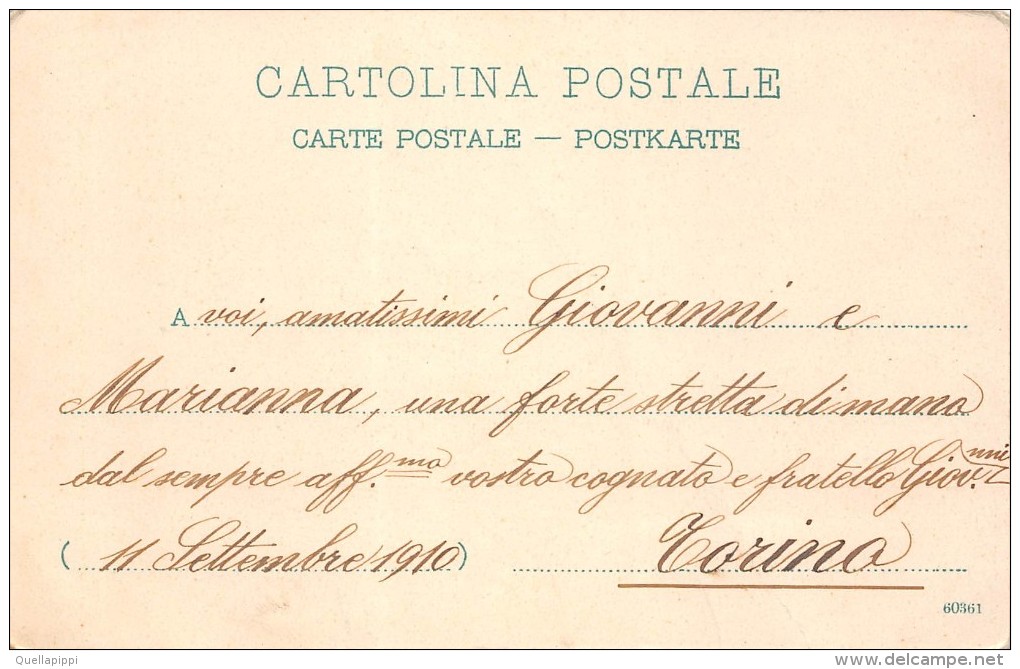 CARTOLINA POSTALE
CARTE POSTALE — POSTKARTE
A voi, amatissimi Giovanni e
Marianna, una forte stretta di mano
dal sempre aff.mo vostro cognato e fratello Giov.nni
( 11 Settembre 1910) Torino
60361
Quellapippi
delcampe.net